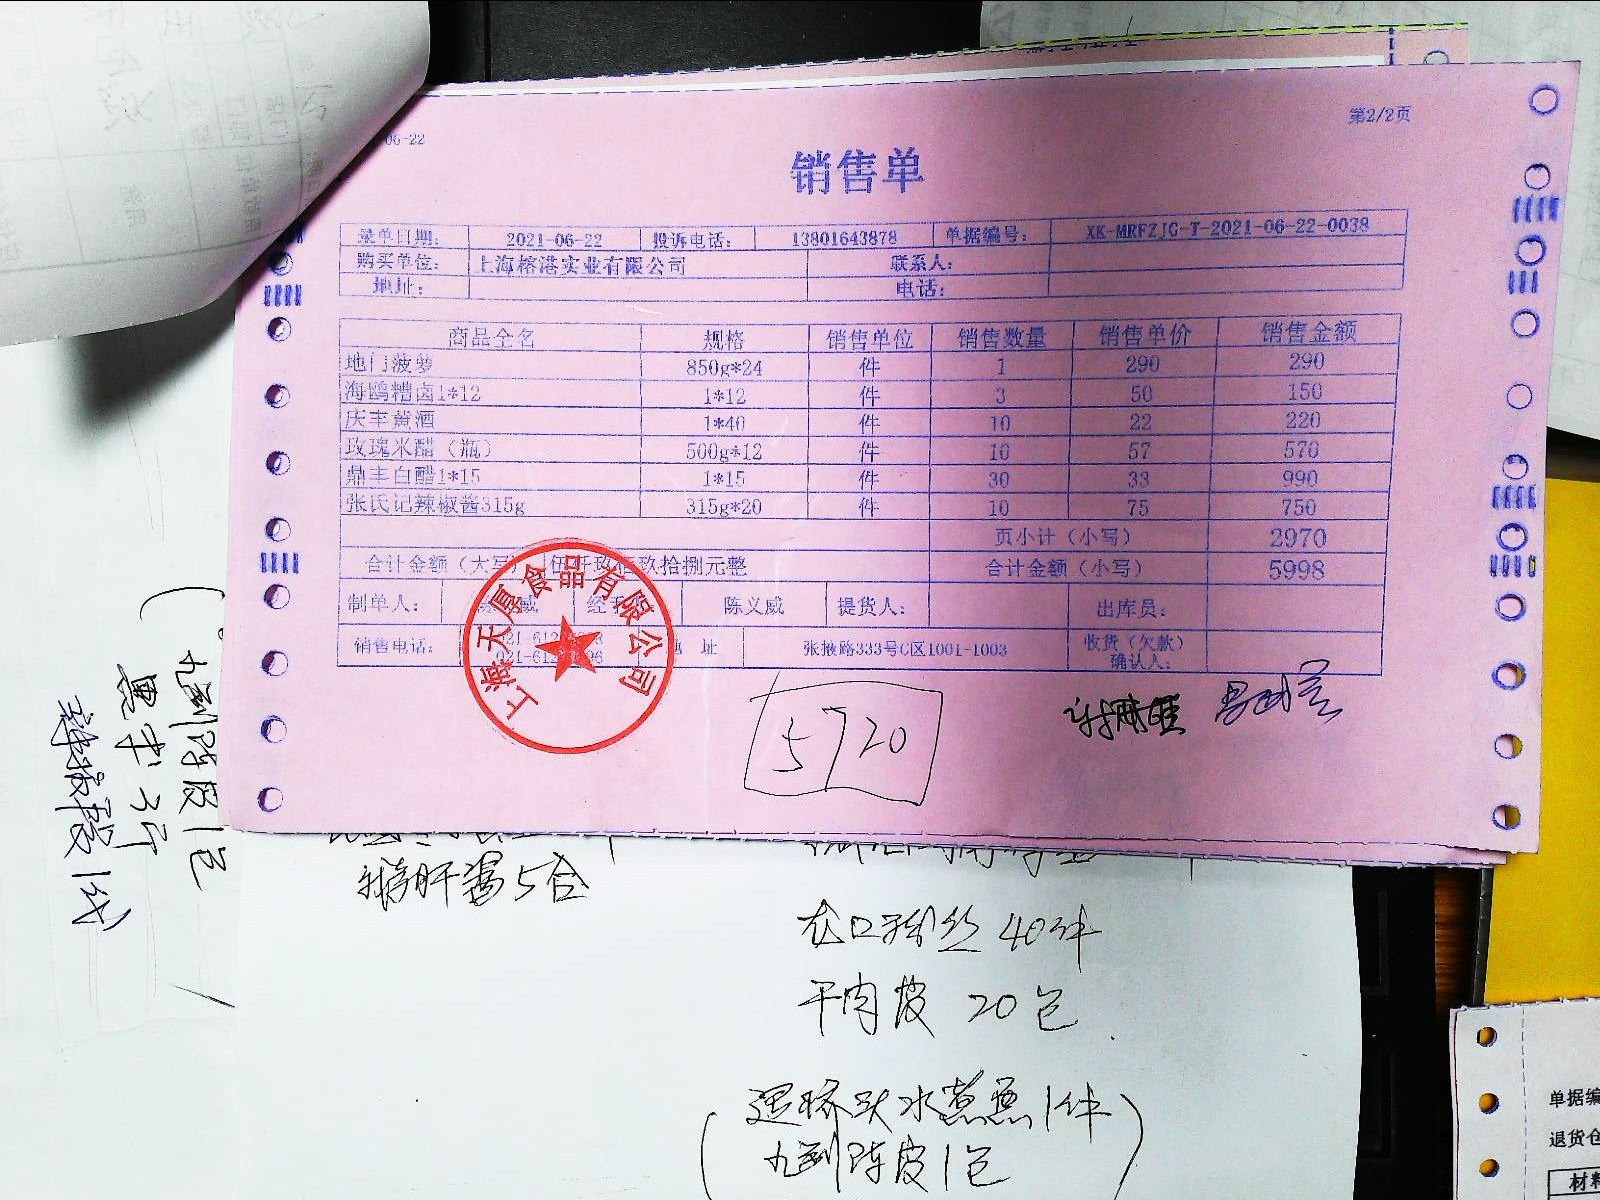 06-22
第2/2页
销售单
录单日期： 2021-06-22 投诉电话： 13801643878 单据编号： XK-MRFZJG-T-2021-06-22-0038
购买单位： 上海榕港实业有限公司 联系人：
地址： 电话：
商品全名 规格 销售单位 销售数量 销售单价 销售金额
地门菠萝 850g*24 件 1 290 290
海鸥糟卤1*12 1*12 件 3 50 150
庆丰黄酒 1*40 件 10 22 220
玫瑰米醋（瓶） 500g*12 件 10 57 570
鼎丰白醋1*15 1*15 件 30 33 990
张氏记辣椒酱315g 315g*20 件 10 75 750
页小计（小写） 2970
合计金额（大写） 伍仟玖佰玖拾捌元整 合计金额（小写） 5998
制单人： 陈义威 经手人 陈义威 提货人： 出库员：
销售电话： 021-61 021-61 地 址 张掖路333号C区1001-1003 收货（欠款）确认人：
上海天厚食品有限公司
5720
九制陈皮1包
鹅肝酱5合
龙口粉丝 40件
干肉皮 20包
水煮 1件
九制陈皮1包
单据编
退货仓
材料